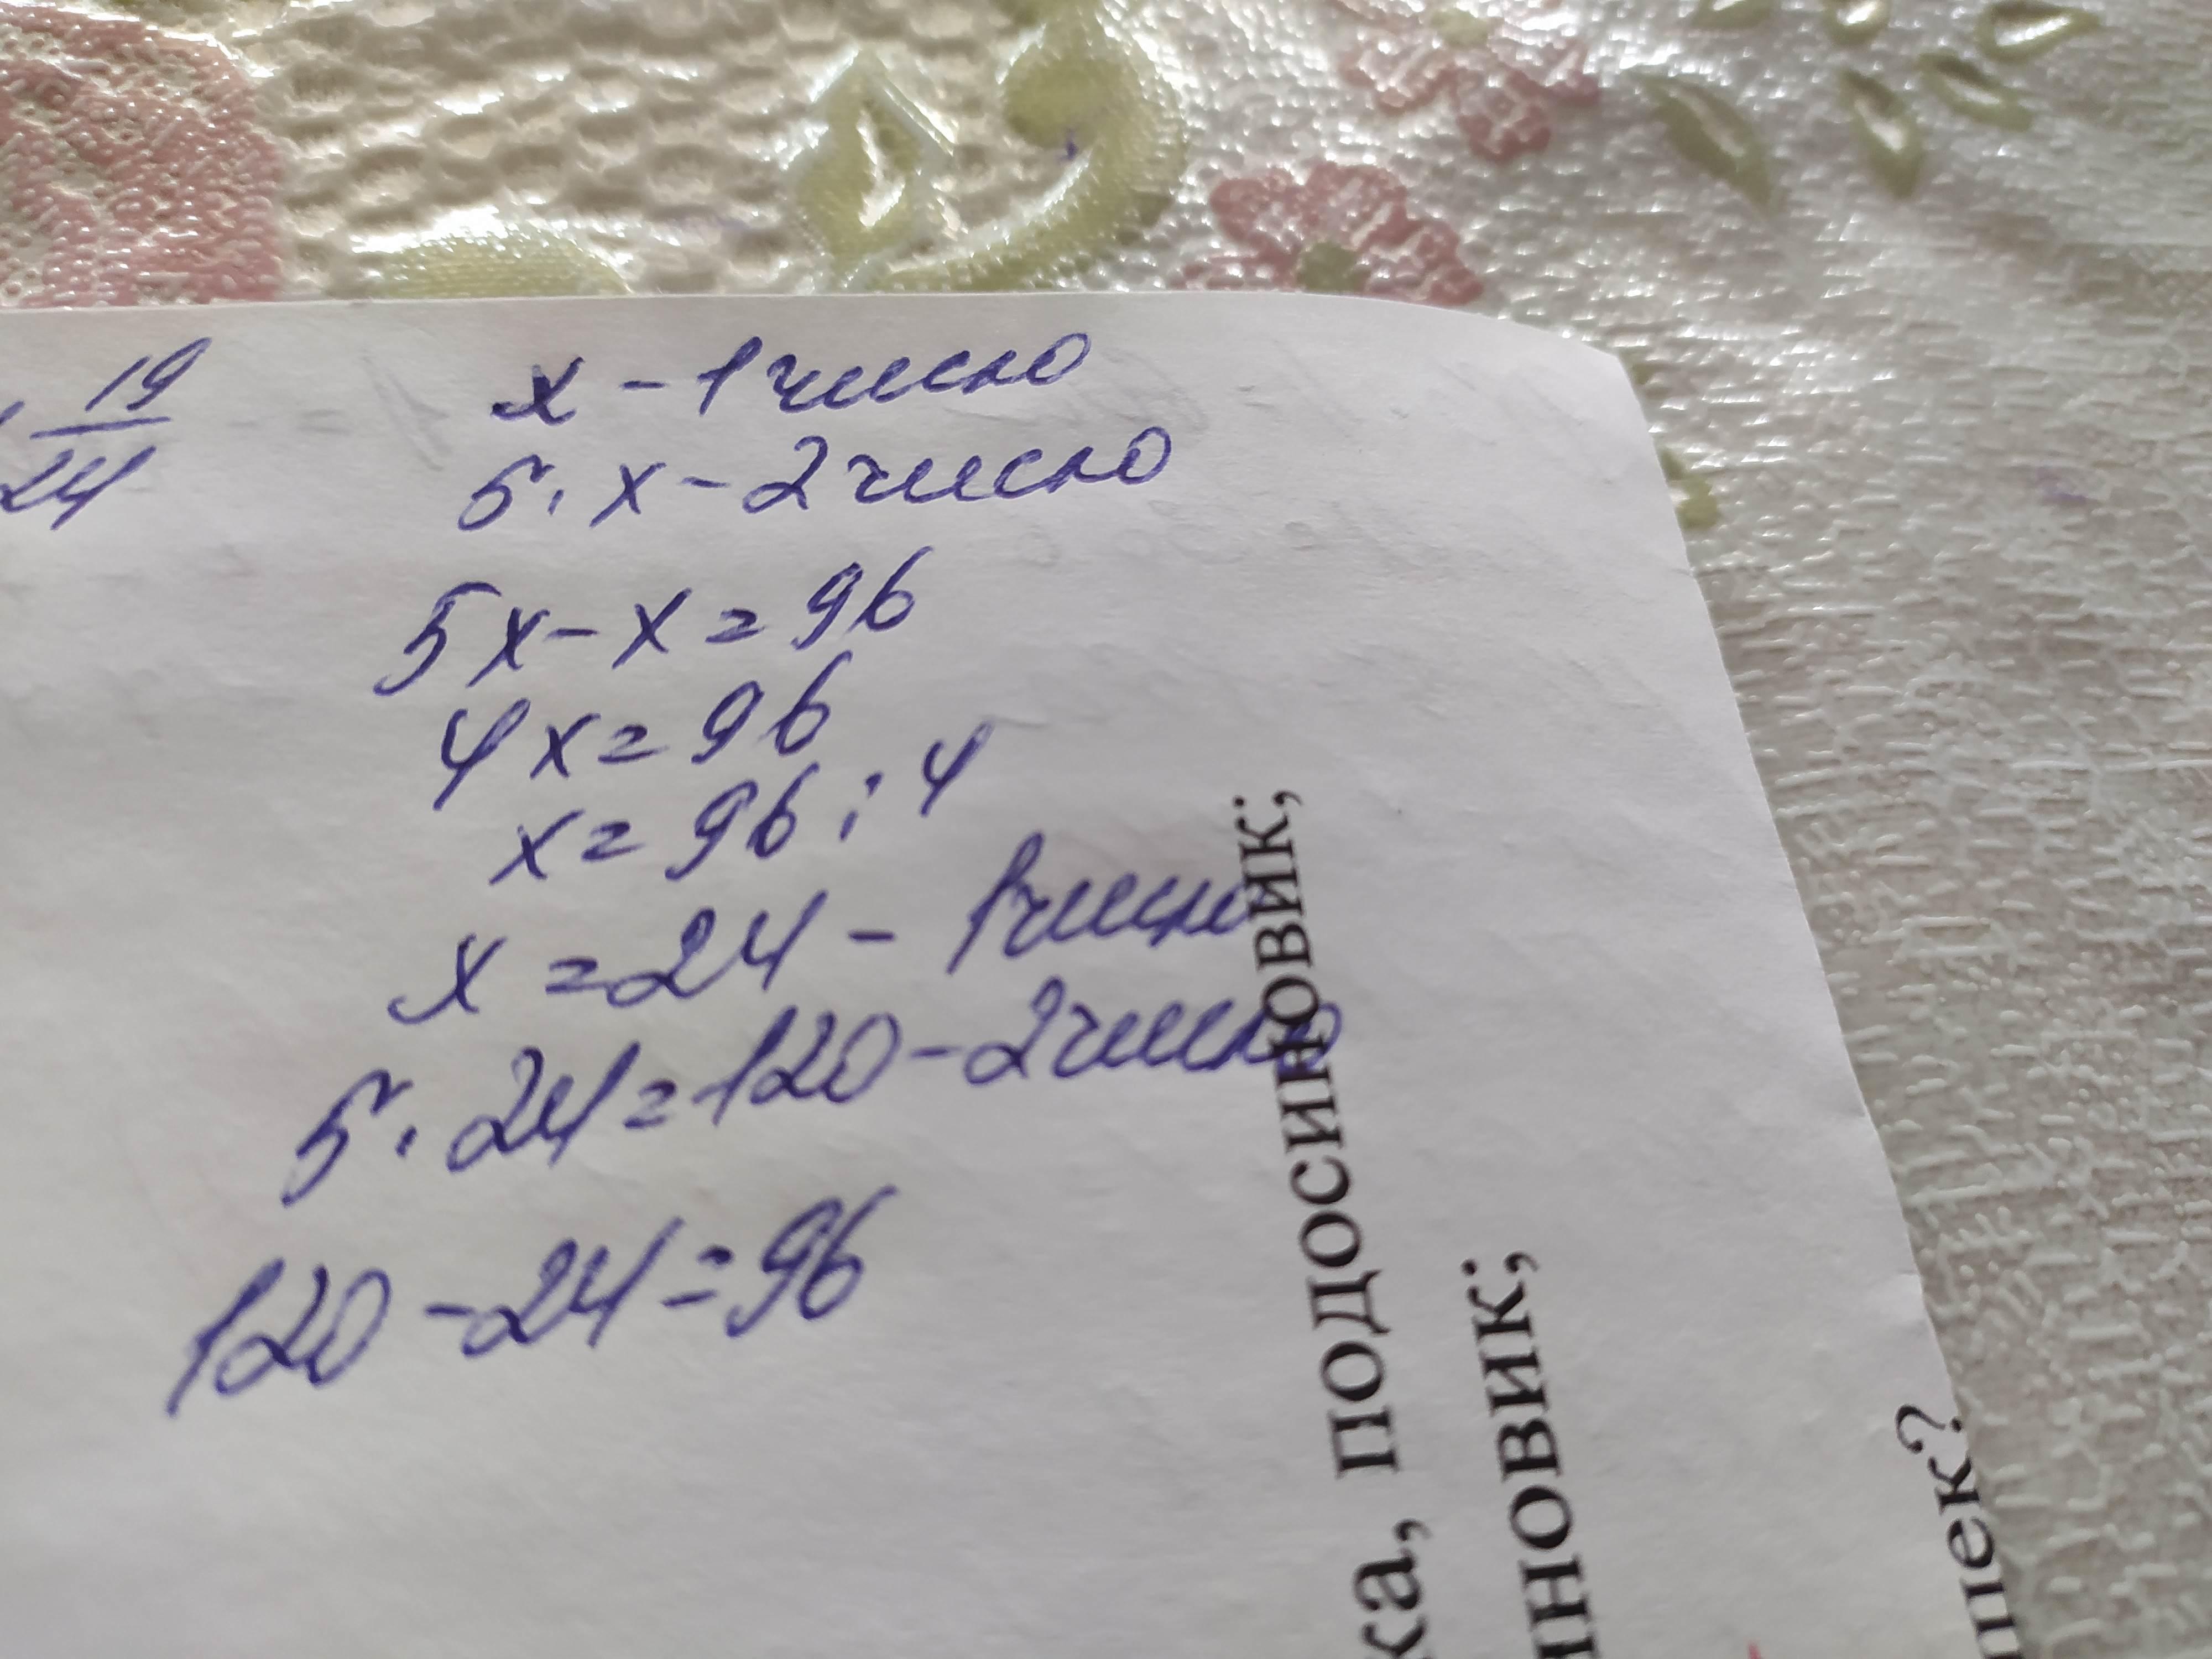 19
24
24
x - 1 число
5 · x - 2 число
5x - x = 96
4x = 96
x = 96 : 4
x = 24 - 1 число
5 · 24 = 120 - 2 число
120 - 24 = 96
ка, подосиновик;
новик;
шек?